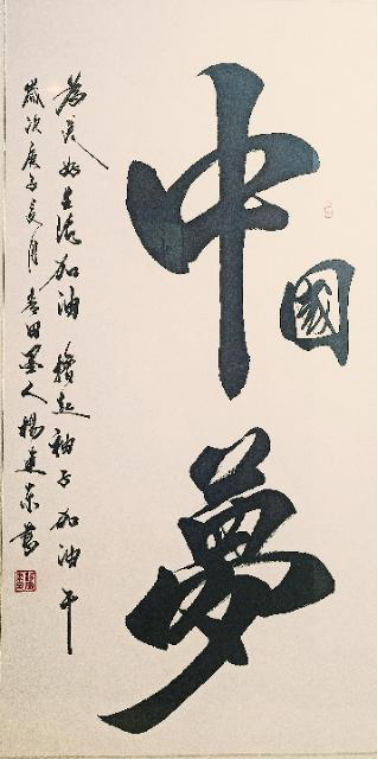 中國夢
为美好生活加油 撸起袖子加油干
歲次庚子亥月 青田墨人楊建东書